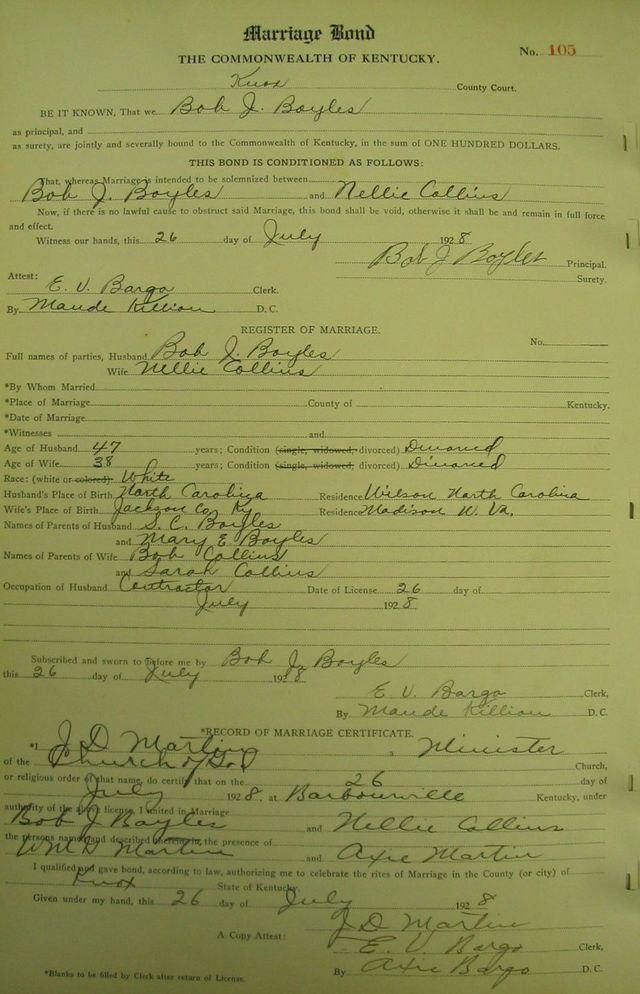 Marriage Bond
THE COMMONWEALTH OF KENTUCKY.
No. 105
Knox County Court.
BE IT KNOWN, That we Bob J. Boyles
as principal, and
as surety, are jointly and severally bound to the Commonwealth of Kentucky, in the sum of ONE HUNDRED DOLLARS.
THIS BOND IS CONDITIONED AS FOLLOWS:
That, whereas Marriage is intended to be solemnized between
Bob J. Boyles and Nellie Collins
Now, if there is no lawful cause to obstruct said Marriage, this bond shall be void, otherwise it shall be and remain in full force
and effect.
Witness our hands, this 26 day of July 1928
Bob J Boyles Principal.
Surety.
Attest:
E. V. Bargo Clerk.
By Maude Killion D. C.
REGISTER OF MARRIAGE.
No.
Full names of parties, Husband Bob J. Boyles
Wife Nellie Collins
*By Whom Married
*Place of Marriage County of Kentucky.
*Date of Marriage
*Witnesses and
Age of Husband 47 years; Condition (single, widowed, divorced) Divorced
Age of Wife 38 years; Condition (single, widowed, divorced) Divorced
Race: (white or colored) White
Husband's Place of Birth North Carolina Residence Wilson North Carolina
Wife's Place of Birth Jackson Co Ky Residence Madison W. Va.
Names of Parents of Husband S. C. Boyles
and Mary E. Boyles
Names of Parents of Wife Bob Collins
and Sarah Collins
Occupation of Husband Contractor Date of License 26 day of
July 1928
Subscribed and sworn to before me by Bob J. Boyles
this 26 day of July 1928
E. V. Bargo Clerk,
By Maude Killion D. C.
*RECORD OF MARRIAGE CERTIFICATE.
*I J. D. Martin, a Minister
of the Church of God Church,
or religious order of that name, do certify that on the 26 day of
July 1928, at Barbourville Kentucky, under
authority of the above license, I united in Marriage
Bob J Boyles and Nellie Collins
the persons named and described therein, in the presence of
Wm H Martin and Axie Martin
I qualified and gave bond, according to law, authorizing me to celebrate the rites of Marriage in the County (or city) of
Knox State of Kentucky.
Given under my hand, this 26 day of July 1928
J D Martin
A Copy Attest: E. V. Bargo Clerk,
By Axie Bargo D. C.
*Blanks to be filled by Clerk after return of License.